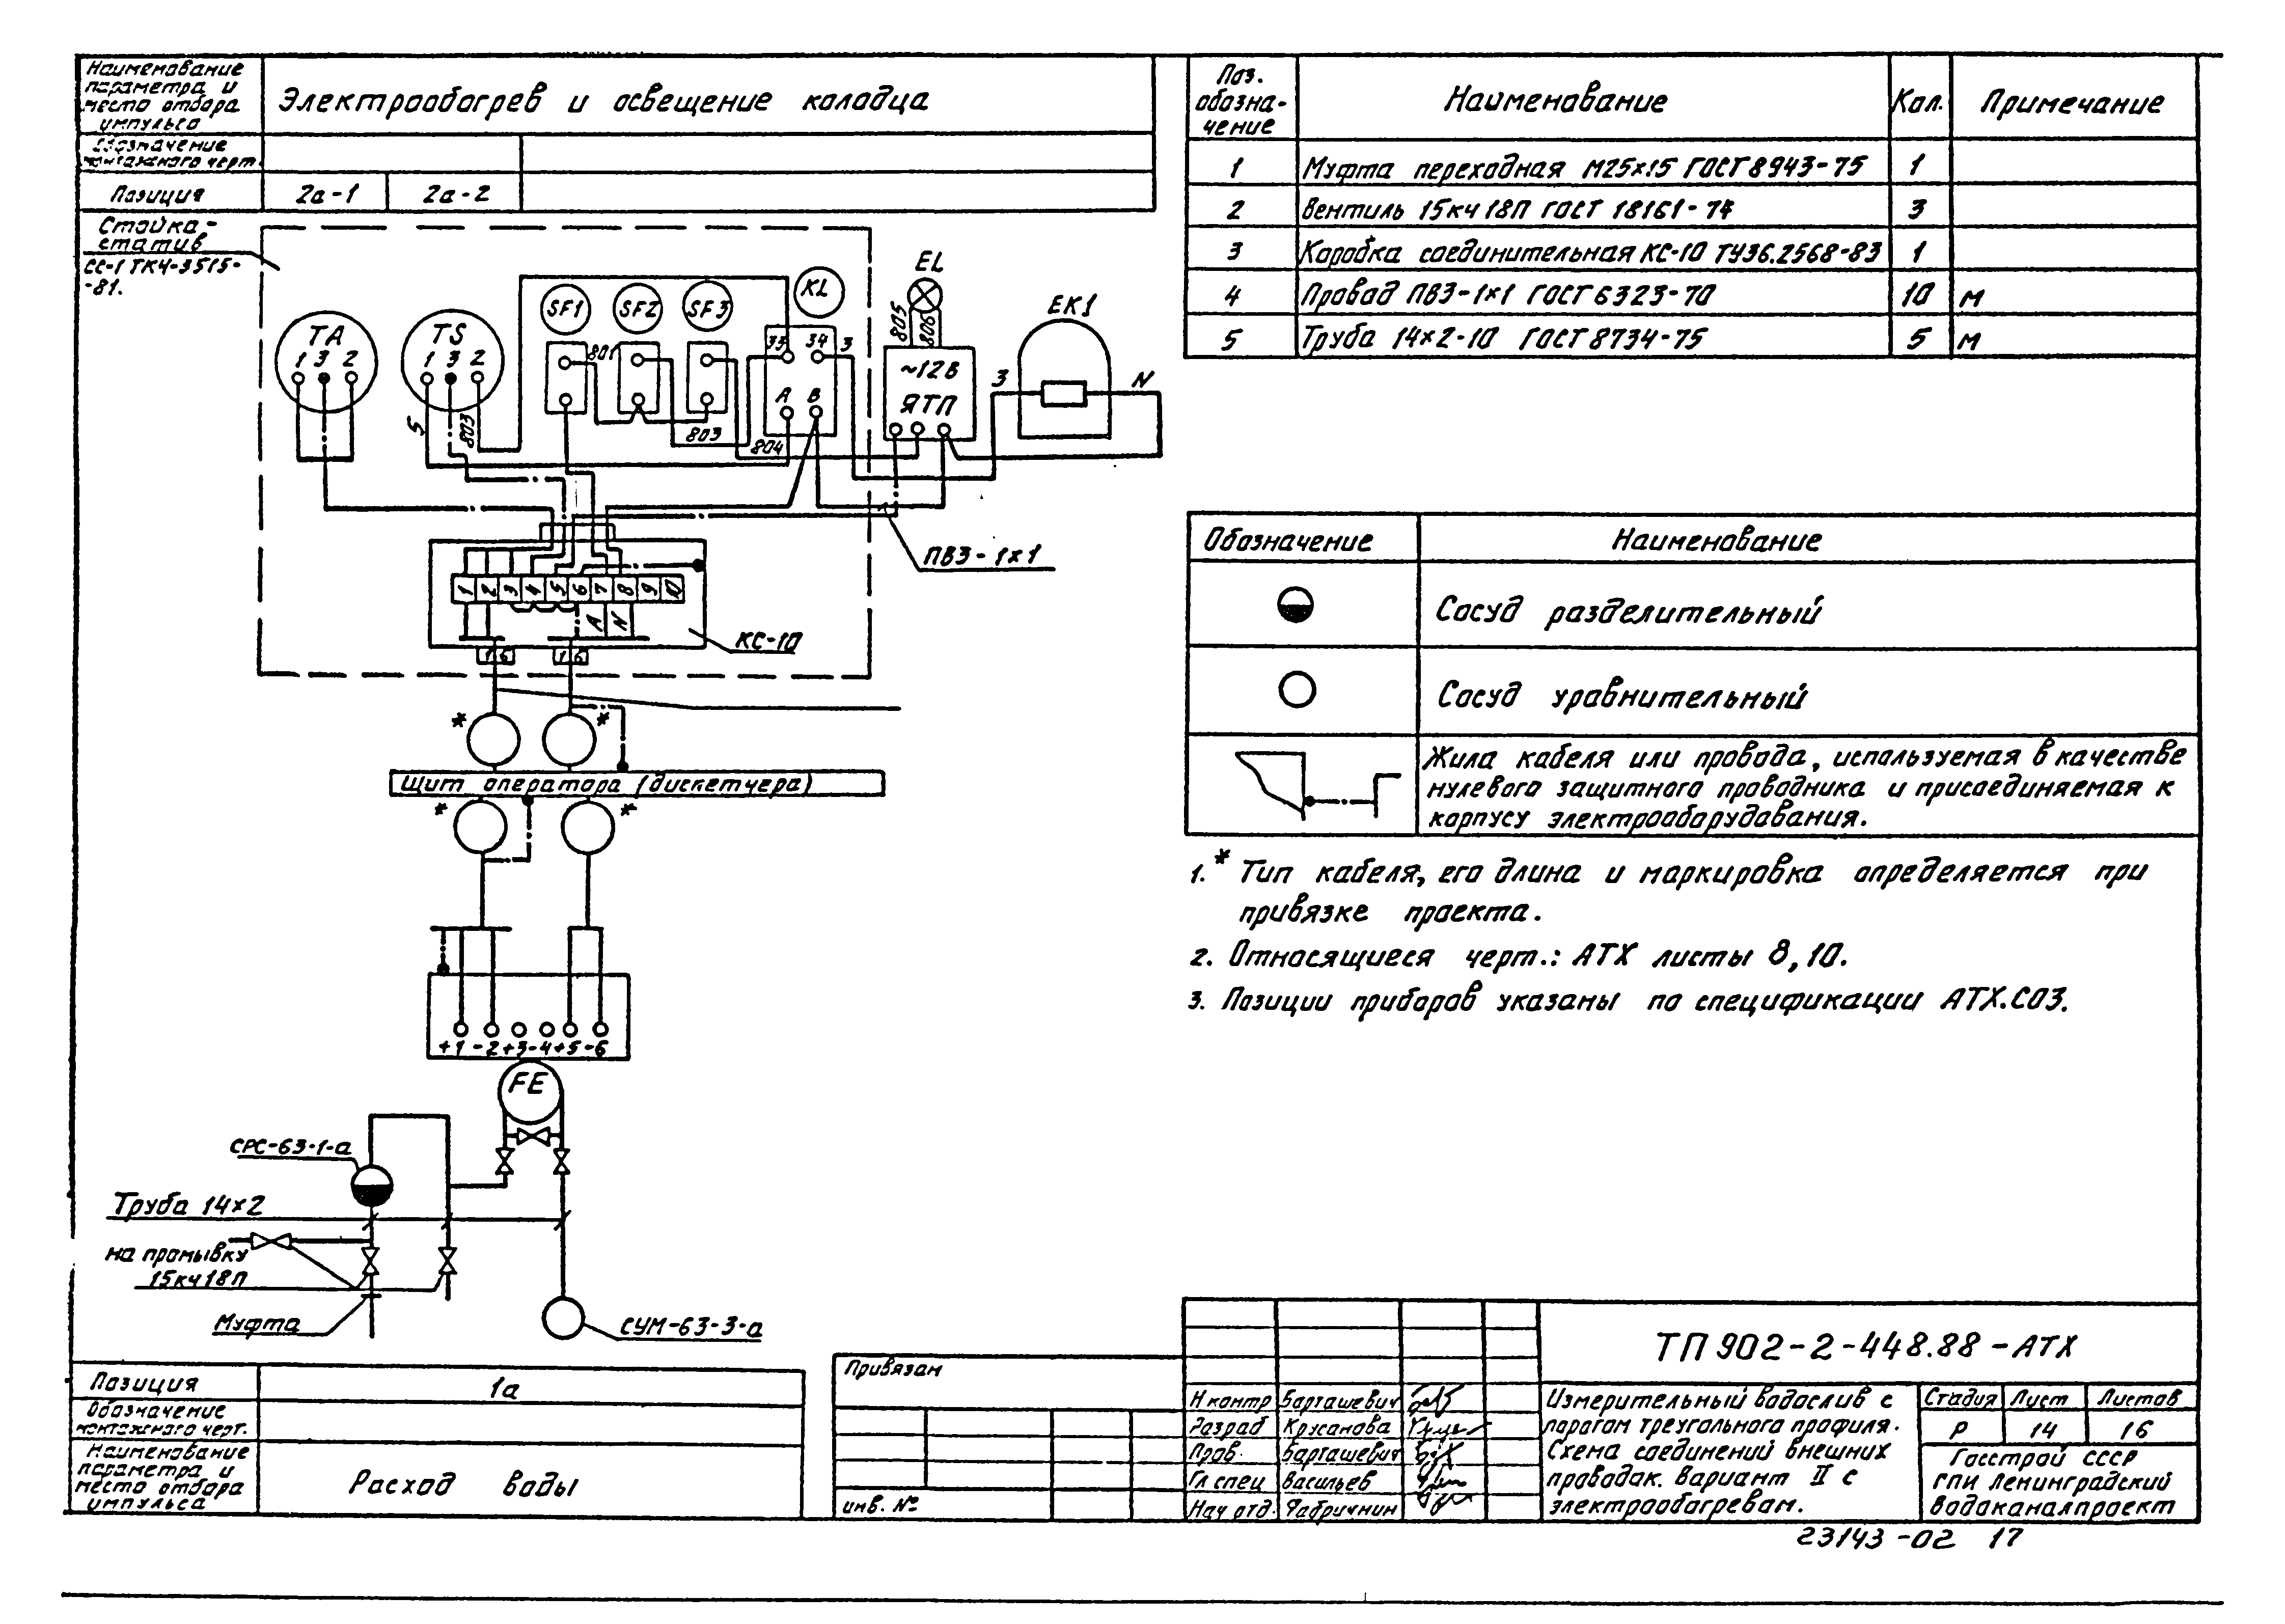 Наименование
параметра и
место отбора
импульса
Электрообогрев и освещение колодца
Обозначение
монтажного черт.
Позиция
2а-1
2а-2
Стойка-
статив
СС-1 ТК4-3515-
-81.
TA
1 3 2
TS
1 3 2
5
803
SF1
SF2
SF3
KL
801
803
804
33
34
3
A
B
EL
805
806
~12В
ЯТП
EK1
3
N
ПВ3-1×1
1 2 3 4 5 6 7 8 9 10
A
N
КС-10
1 6
1 6
*
*
Щит оператора (диспетчера)
*
*
+1 -2 +3 -4 +5 -6
FE
СРС-63-1-а
Труба 14×2
на промывку
15кч18П
Муфта
СУМ-63-3-а
Позиция
1а
Обозначение
монтажного черт.
Наименование
параметра и
место отбора
импульса
Расход воды
Поз.
обозна-
чение
Наименование
Кол.
Примечание
1 Муфта переходная М25×15 ГОСТ 8943-75 1
2 Вентиль 15кч 18П ГОСТ 18161-74 3
3 Коробка соединительная КС-10 ТУ36.2568-83 1
4 Провод ПВ3-1×1 ГОСТ 6323-70 10 м
5 Труба 14×2-10 ГОСТ 8734-75 5 м
Обозначение
Наименование
Сосуд разделительный
Сосуд уравнительный
Жила кабеля или провода, используемая в качестве
нулевого защитного проводника и присоединяемая к
корпусу электрооборудования.
1.* Тип кабеля, его длина и маркировка определяется при
привязке проекта.
2. Относящиеся черт.: АТХ листы 8,10.
3. Позиции приборов указаны по спецификации АТХ.СО3.
Привязан
инв. №
ТП 902-2-448.88-АТХ
Н контр Барташевич
Разраб Крусанова
Пров. Барташевич
Гл спец Васильев
Нач отд. Фабричнин
Измерительный водослив с
порогом треугольного профиля.
Схема соединений внешних
проводок. Вариант II с
электрообогревом.
Стадия Лист Листов
Р 14 16
Госстрой СССР
ГПИ Ленинградский
Водоканалпроект
23143-02 17